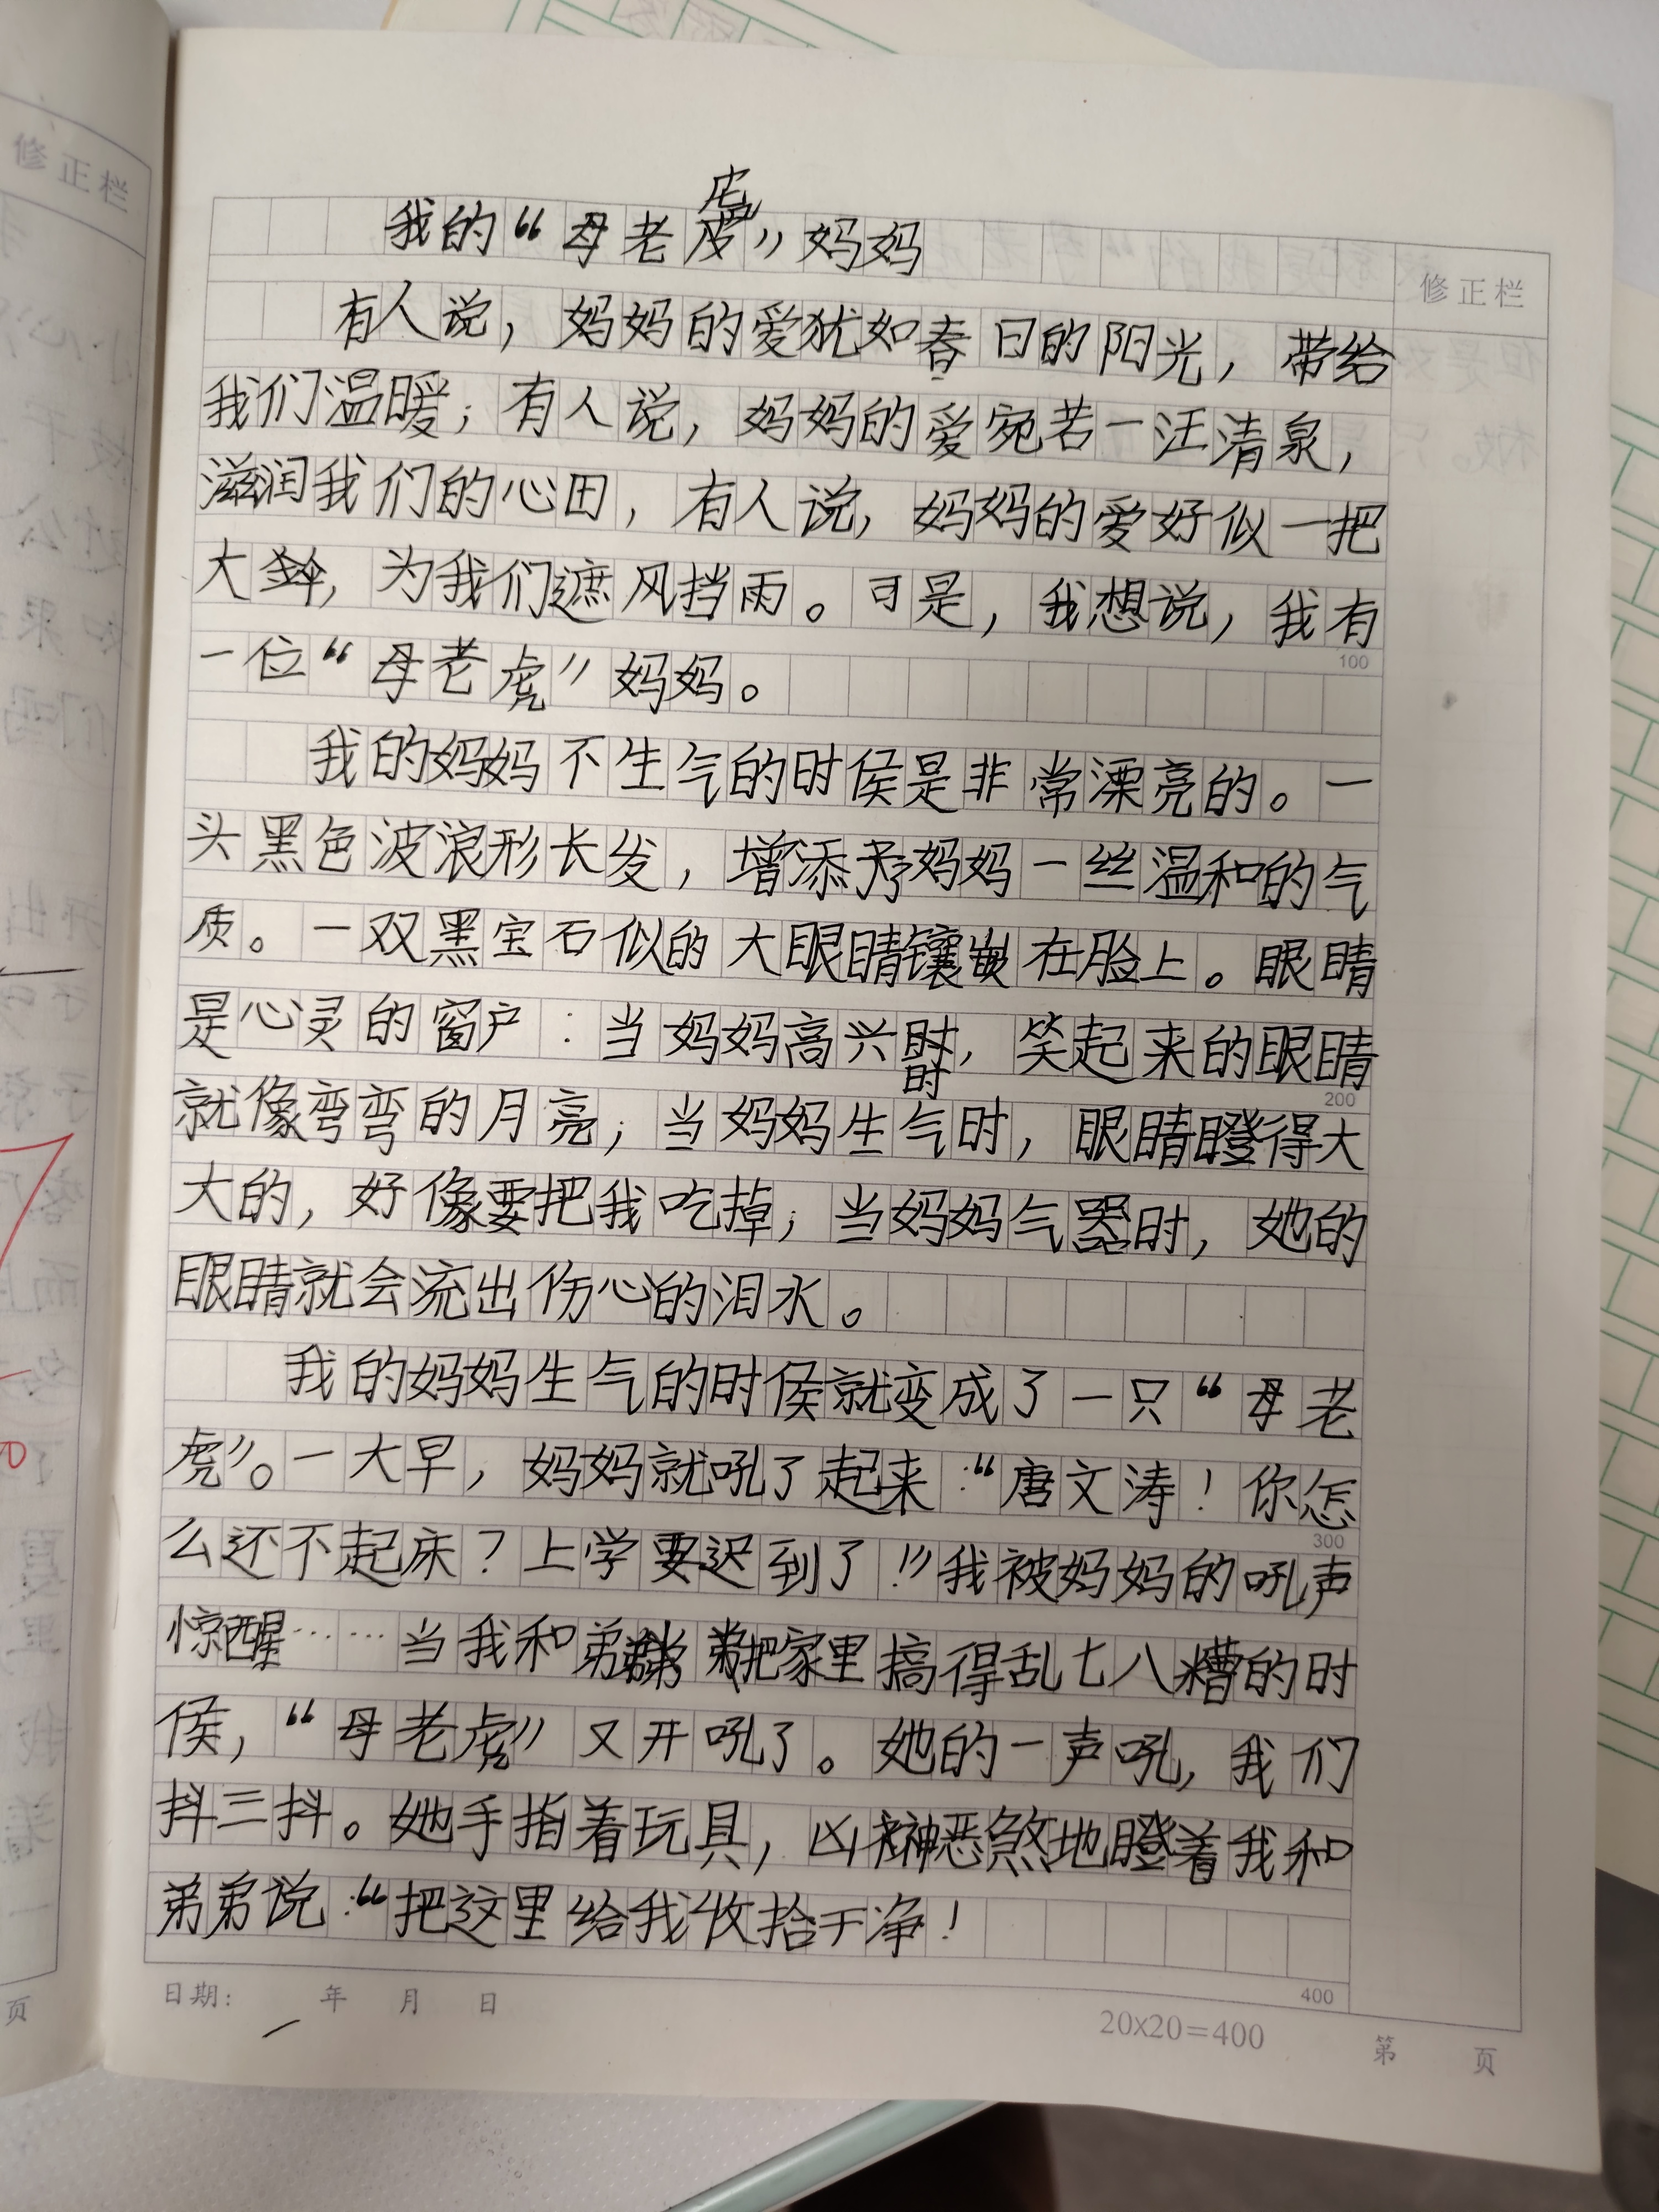 我的“母老虎”妈妈
修正栏
有人说，妈妈的爱犹如春日的阳光，带给
我们温暖；有人说，妈妈的爱宛若一汪清泉，
滋润我们的心田，有人说，妈妈的爱好似一把
大伞，为我们遮风挡雨。可是，我想说，我有
一位“母老虎”妈妈。
100
我的妈妈不生气的时侯是非常漂亮的。一
头黑色波浪形长发，增添予妈妈一丝温和的气
质。一双黑宝石似的大眼睛镶嵌在脸上。眼睛
是心灵的窗户：当妈妈高兴时，笑起来的眼睛
200
就像弯弯的月亮；当妈妈生气时，眼睛瞪得大
大的，好像要把我吃掉；当妈妈气嚣时，她的
眼睛就会流出伤心的泪水。
我的妈妈生气的时侯就变成了一只“母老
虎”。一大早，妈妈就吼了起来：“唐文涛！你怎
300
么还不起床？上学要迟到了！”我被妈妈的吼声
惊醒……当我和弟弟把家里搞得乱七八糟的时
侯，“母老虎”又开吼了。她的一声吼，我们
抖三抖。她手指着玩具，凶神恶煞地瞪着我和
弟弟说：“把这里给我收拾干净！
400
日期： 年 月 日
20×20=400
第 页
修正栏
页